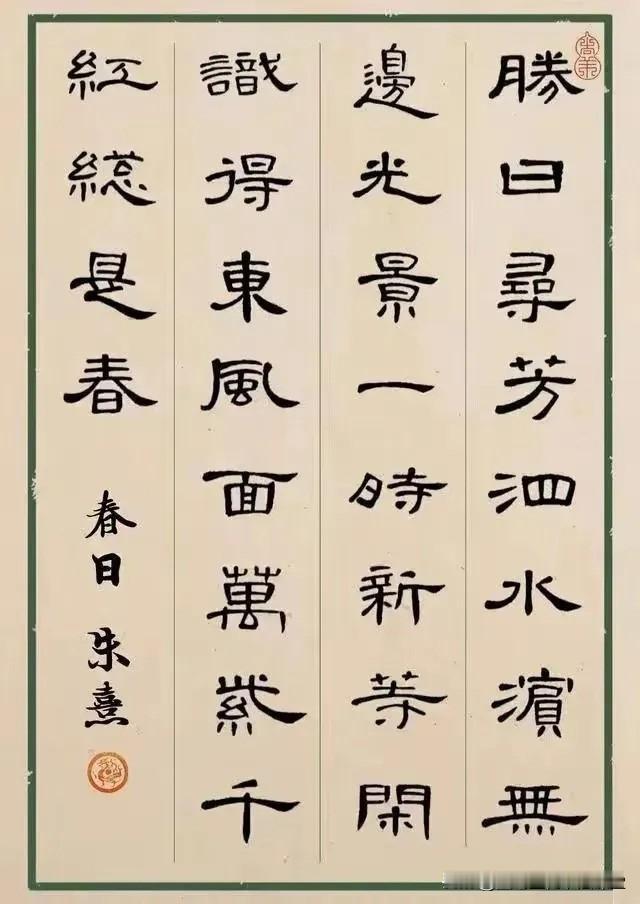 勝日尋芳泗水濱無
邊光景一時新等閑
識得東風面萬紫千
紅緫是春
春日 朱熹